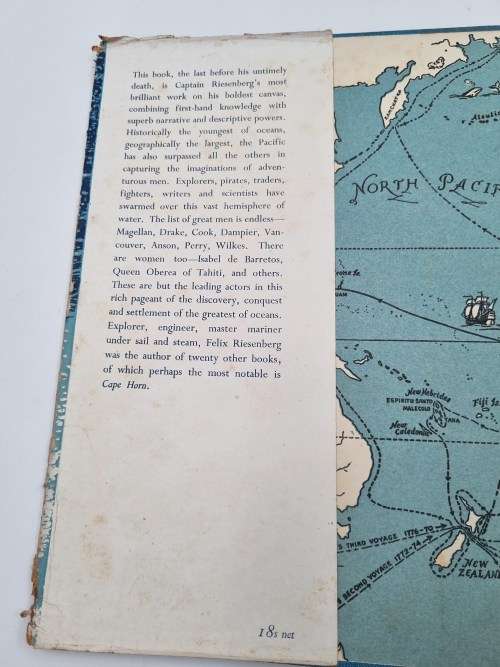 This book, the last before his untimely
death, is Captain Riesenberg's most
brilliant work on his boldest canvas,
combining first-hand knowledge with
superb narrative and descriptive powers.
Historically the youngest of oceans,
geographically the largest, the Pacific
has also surpassed all the others in
capturing the imaginations of adven-
turous men. Explorers, pirates, traders,
fighters, writers and scientists have
swarmed over this vast hemisphere of
water. The list of great men is endless—
Magellan, Drake, Cook, Dampier, Van-
couver, Anson, Perry, Wilkes. There
are women too—Isabel de Barretos,
Queen Oberea of Tahiti, and others.
These are but the leading actors in this
rich pageant of the discovery, conquest
and settlement of the greatest of oceans.
Explorer, engineer, master mariner
under sail and steam, Felix Riesenberg
was the author of twenty other books,
of which perhaps the most notable is
Cape Horn.
18s net
KAMCHATKA
NORTH PACIF
New Hebrides
ESPIRITU SANTO
MALECOLO
TANA
New
Caledonia
Fiji Is
S THIRD VOYAGE 1776-70
SECOND VOYAGE 1772-74
NEW
ZEALAND